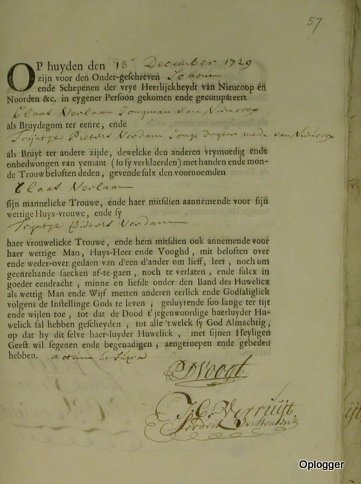 57
OP huyden den 18e December 1729
zijn voor den Onder-geschreven
ende Schepenen der vrye Heerlijkheydt van Nieucoop en
Noorden &c. in eygener Persoon gekomen ende gecompareert
Claas Verlaan Jongman van Nieucoop
als Bruydegom ter eenre, ende
Trijntje Pieters Verdam Jonge dogter mede van Nieucoop
als Bruyt ter andere zijde, dewelcke den anderen vrymoedig ende
onbedwongen van yemant (so sy verklaerden) met handen ende mon-
de Trouw beloften deden, gevende sulx den voornoemden
Claas Verlaan
sijn mannelicke Trouwe, ende haer mitsdien aannemende voor sijn
wettige Huys-vrouwe, ende sy
Trijntje Pieters Verdam
haer vrouwelicke Trouwe, ende hem mitsdien ook annemende voor
haer wettige Man, Huys-Heer ende Vooghd, met beloften over
ende weder-over gedaan van d'een d'ander om lieff, leet, noch om
geenrehande saecken af-te gaen, noch te verlaten, ende sulcx in
goeder eendracht, minne en liefde onder den Band des Huwelicx
als wettig Man ende Wijf metten anderen eerlick ende Godsaliglick
volgens de Instellinge Gods te leven, geduyrende soo lange ter tijt
ende wijlen toe, tot dat de Dood t'jegenwoordige haerluyder Hu-
welick sal hebben gescheyden, tot alle 'twelck sy God Almachtig,
op dat hy dit selve haer Huwelick, met sijnen Heyligen
Geest wil segenen ende begenadigen, aengeroepen ende gebeden
hebben. actum ut supra
Voogt
Verruijst
Oplogger